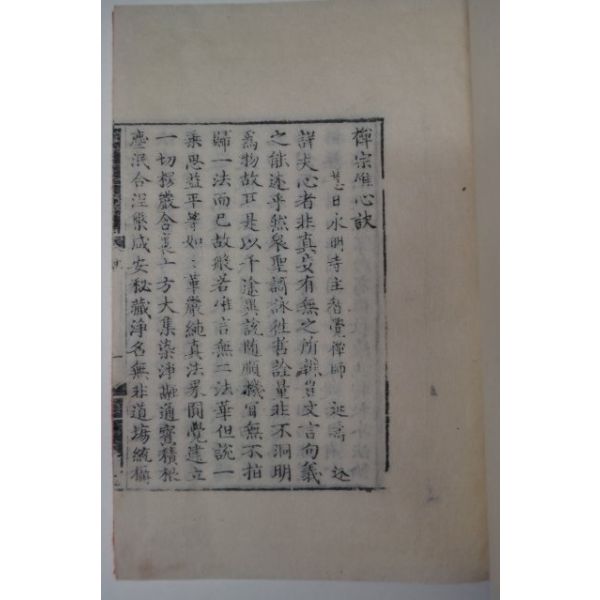 禪宗唯心訣
慧日永明寺主智覺禪師 延壽 述
詳夫心者非真妄有無之所辨豈文言句義
之能述乎然衆聖謌詠往哲詮量非不洞明
爲物故耳是以千途異說随順機宜無不指
歸一法而已故般若唯言無二法華但說一
乘思益平等如如華嚴純真法界圓覺建立
一切楞嚴含裹十方大集染淨融通寶積根
塵泯合涅槃咸安秘藏淨名無非道場統攝